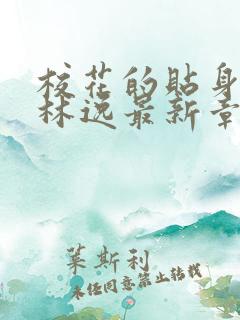 校花的貼身
林逸最新章
莱斯利
未经同意禁止转载